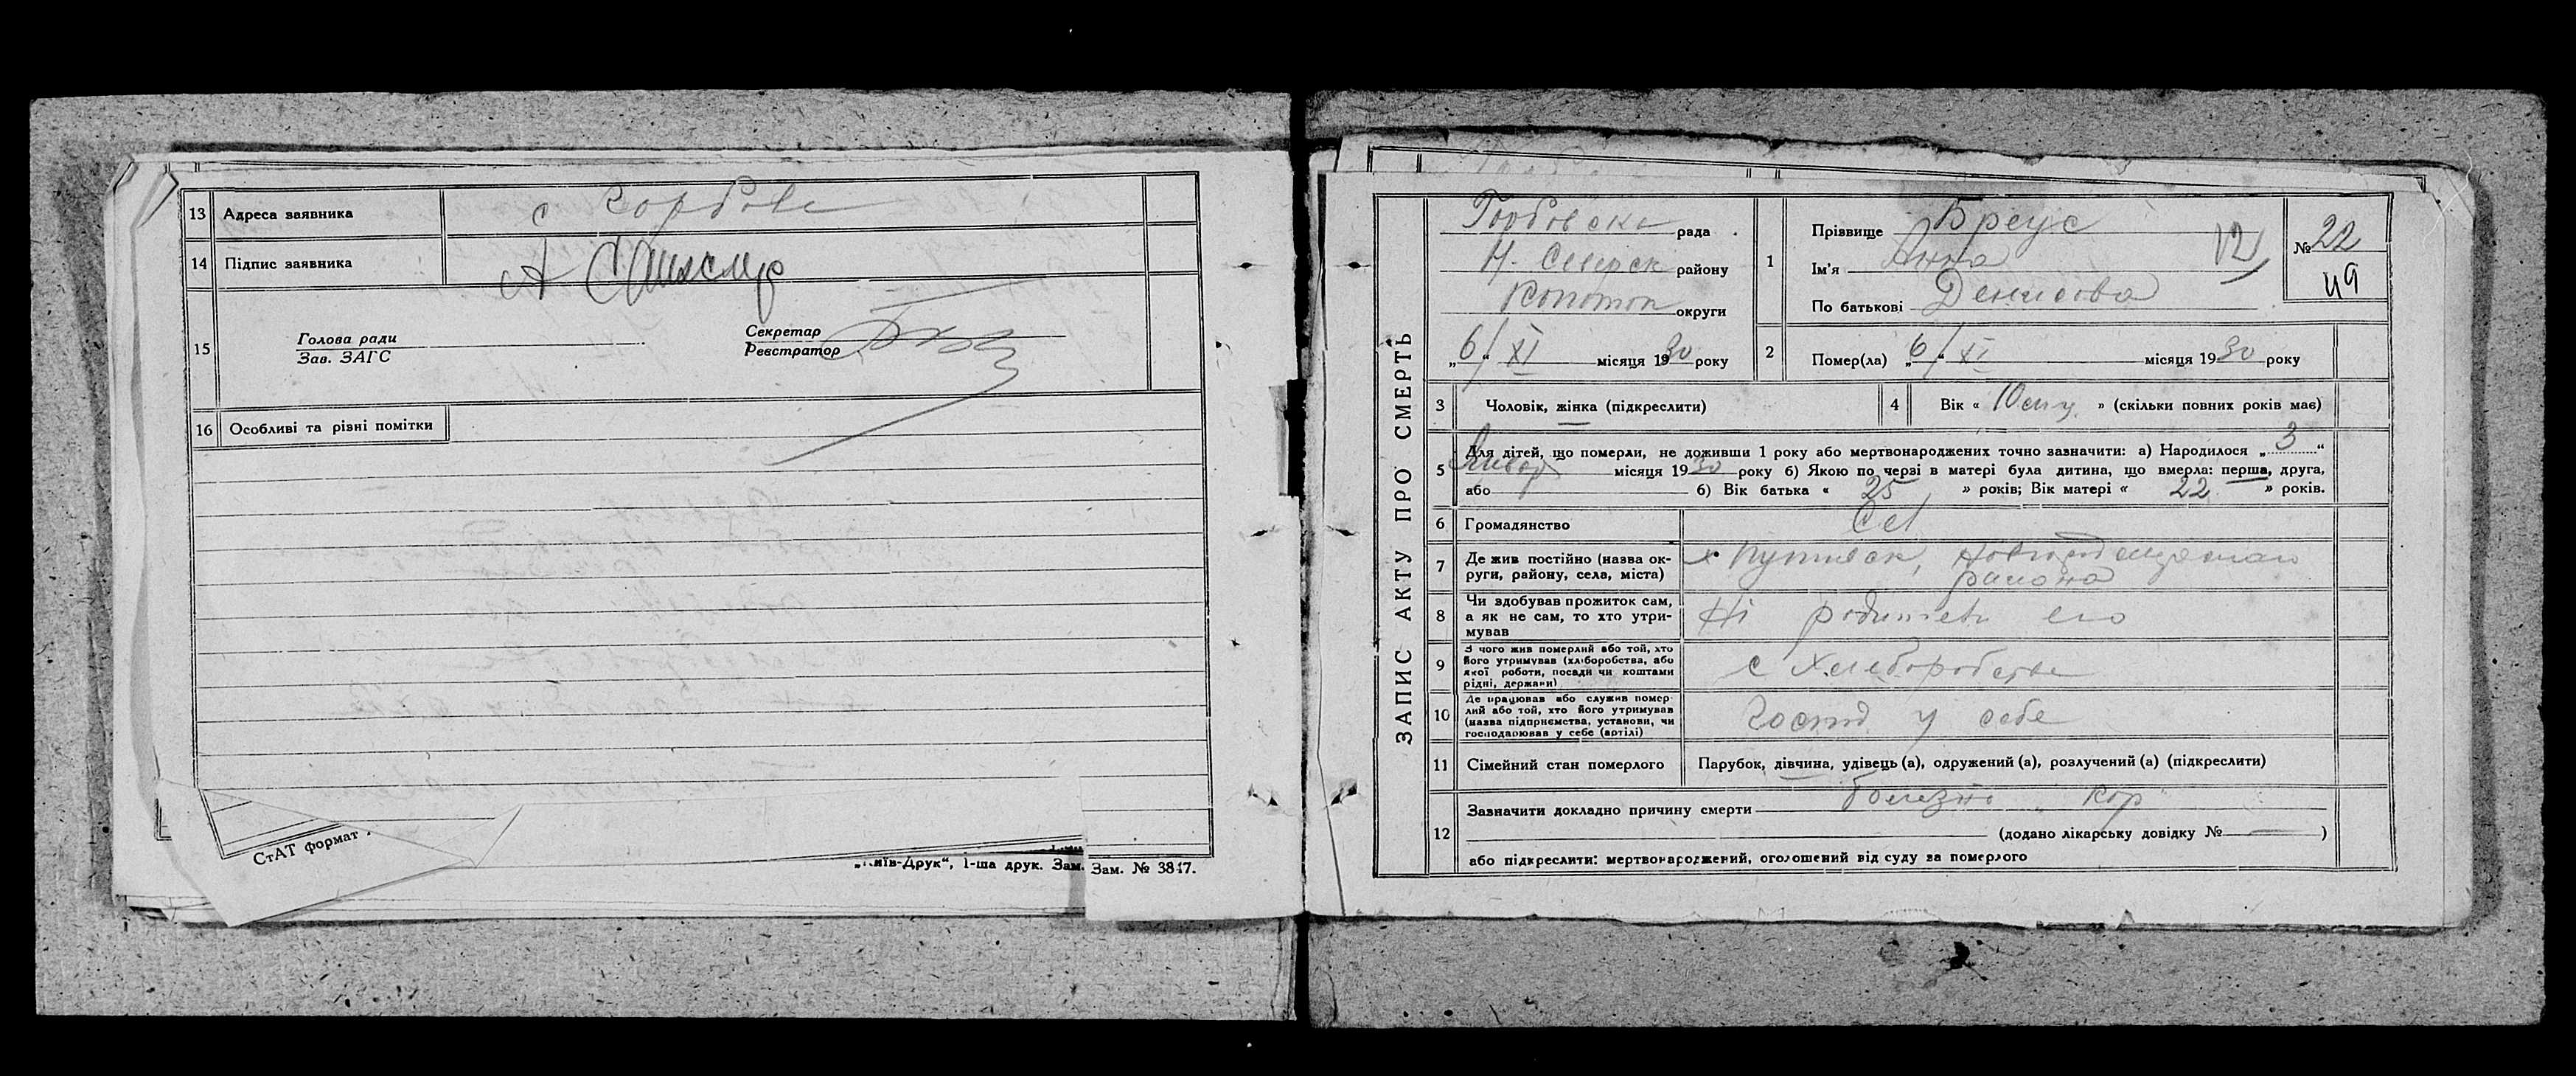 13 Адреса заявника с Горбове
14 Підпис заявника А
15 Голова ради
Зав. ЗАГС
Секретар
Реєстратор
16 Особливі та різні помітки
СтАТ формат
„Київ-Друк“, 1-ша друк. Зам. Зам. № 3817.
ЗАПИС АКТУ ПРО СМЕРТЬ
Горбовска рада
Н. Северск району
Конотоп округи
„6“/XI місяця 1930 року
1 Прізвище Бреус
Ім'я Анна 12
По батькові Денисова
№ 22
49
2 Помер(ла) „6“/XI місяця 1930 року
3 Чоловік, жінка (підкреслити)
4 Вік « 10 » (скільки повних років має)
5 Для дітей, що померли, не доживши 1 року або мертвонароджених точно зазначити: а) Народилося „ 3 “
Январ місяця 1930 року б) Якою по черзі в матері була дитина, що вмерла: перша, друга,
або б) Вік батька « 25 » років; Вік матері « 22 » років.
6 Громадянство
7 Де жив постійно (назва ок-
руги, району, села, міста)
района
8 Чи здобував прожиток сам,
а як не сам, то хто утри-
мував
Ні родители его
9 З чого жив померлий або той, хто
його утримував (хліборобства, або
якої роботи, посади чи коштами
рідні, держави)
с Хлеборобства
10 Де працював або служив помер-
лий або той, хто його утримував
(назва підприємства, установи, чи
господарював у себе (артілі)
Господ у себе
11 Сімейний стан померлого Парубок, дівчина, удівець (а), одружений (а), розлучений (а) (підкреслити)
12 Зазначити докладно причину смерти болезнь „Кор“
(додано лікарську довідку № — )
або підкреслити: мертвонароджений, оголошений від суду за померлого